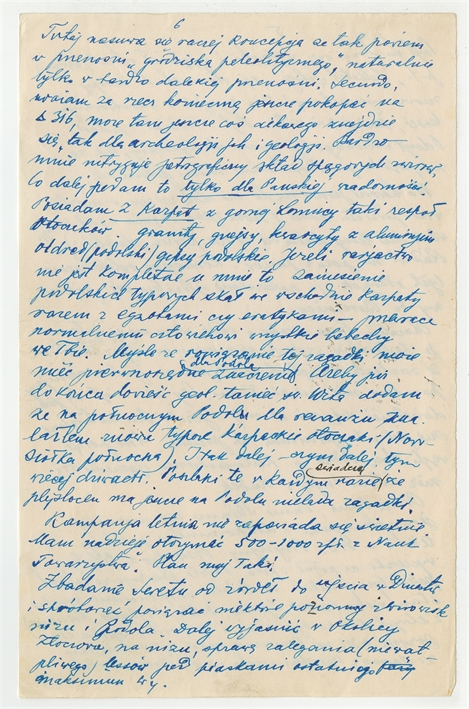 6
Tutaj nasuwa się raczej koncepcja że tak powiem
w przenośni „grodziska paleolitycznego", naturalnie
tylko w bardzo dalekiej przenośni. Secundo,
uważam za rzecz konieczną jeszcze pokopać na
Δ 316, może tam jeszcze coś ciekawego znajdzie
się, tak dla archeologji jak i geologji. Bardzo
mnie intryguje petrograficzny skład spągowych żwirów,
Co dalej podam to tylko dla Pańskiej wiadomości.
Posiadam z Karpat z górnej Łomnicy taki zespół
otoczaków granity, gnejsy, kwarcyty z
oldred (podolski) gipsy podolskie. Jeżeli
nie jest kompletne u mnie to zaniesienie
podolskich typowych skał we wschodnie Karpaty
razem z egzotami czy eratykami –
normalnemu człowiekowi wszystkie
we łbie. Myślę że rozwiązanie tej zagadki może
mieć pierwszorzędne dla Podola znaczenie. Ażeby już
do końca dowieść geol. taniec św. Wita dodam
że na północnym Podolu dla rewanżu zna-
lazłem znowu typowe karpackie otoczaki (Now-
siółka północna), I tak dalej czym dalej, tym
więcej dziwacti. Posiłki te w każdym razie świadczą że
plejstocen ma jeszcze na Podolu nielada zagadki.
Kampanja letnia nie zapowiada się świetnie
Mam nadzieję otrzymać 500-1000 zł. z Nauk
Towarzystwa. Plan mój taki.
Zbadanie Seretu od źródeł do ujścia w Dniestr
i spróbować powiązać niektóre poziomy żwirowisk
niżu i Podola. Dalej wyjaśnić w okolicy
Złoczowa, na niżu, sprawę zalegania (niewąt-
pliwego) lessów pod piaskami ostatniego
maksimum w y.